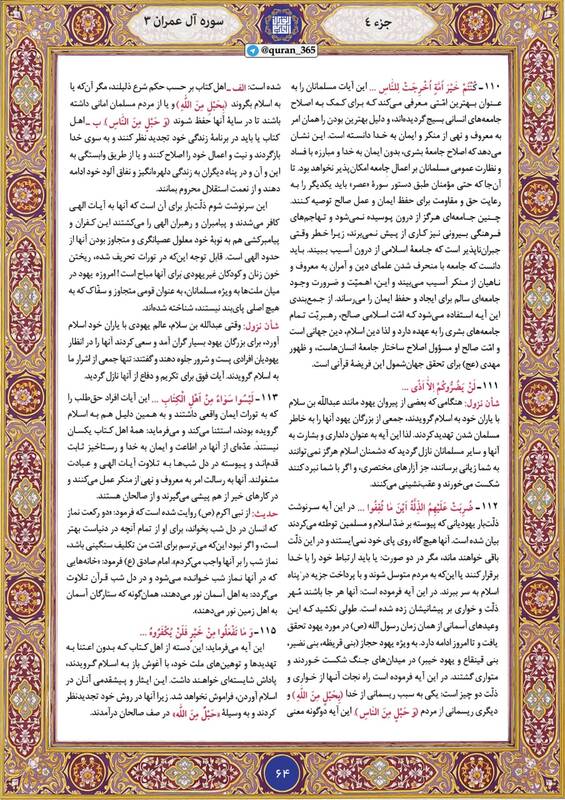 جزء ٤
سوره آل عمران ۳
@quran_365
۱۱۰- كُنْتُمْ خَيْرَ أُمَّةٍ أُخْرِجَتْ لِلنَّاسِ ... این آیات مسلمانان را به
عنوان بهترین امّتی معرفی می‌کند که برای کمک به اصلاح
جامعه‌های انسانی بسیج گردیده‌اند، و دلیل بهترین بودن را همان امر
به معروف و نهی از منکر و ایمان به خدا دانسته است. این نشان
می‌دهد که اصلاح جامعۀ بشری، بدون ایمان به خدا و مبارزه با فساد
و نظارت عمومی مسلمانان بر اعمال جامعه امکان‌پذیر نخواهد بود. تا
آن‌جا که حتی مؤمنان طبق دستور سورۀ «عصر» باید یکدیگر را به
رعایت حق و مقاومت برای حفظ ایمان و عمل صالح توصیه کنند.
چنین جامعه‌ای هرگز از درون پوسیده نمی‌شود و تهاجم‌های
فرهنگی بیرونی نیز کاری از پیش نمی‌برند، زیرا خطر وقتی
جبران‌ناپذیر است که جامعۀ اسلامی از درون آسیب ببیند. باید
دانست که جامعه با منحرف شدن علمای دین و آمران به معروف و
ناهیان از منکر آسیب می‌بیند و این، اهمیّت و ضرورت وجود
جامعه‌ای سالم برای ایجاد و حفظ ایمان را می‌رساند. از جمع‌بندی
این آیه استفاده می‌شود که امّت اسلامی صالح، رهبریّت تمام
جامعه‌های بشری را به عهده دارد و لذا دین اسلام، دین جهانی است
و امّت صالح او مسؤول اصلاح ساختار جامعۀ انسان‌هاست، و ظهور
مهدی (عج) برای تحقق جهان‌شمول این فریضۀ قرآنی است.
۱۱۱- لَنْ يَضُرُّوكُمْ إِلَّا أَذًى ...
شأن نزول: هنگامی که بعضی از پیروان یهود مانند عبداللّه بن سلام
با یاران خود به اسلام گرویدند، جمعی از بزرگان یهود آنها را به خاطر
مسلمان شدن تهدید کردند. لذا این آیه به عنوان دلداری و بشارت به
آنها و سایر مسلمانان نازل گردید که دشمنان اسلام هرگز نمی‌توانند
به شما زیانی برسانند، جز آزارهای مختصری، و اگر با شما نبرد کنند
شکست می‌خورند و عقب‌نشینی می‌کنند.
۱۱۲- ضُرِبَتْ عَلَيْهِمُ الذِّلَّةُ أَيْنَ مَا ثُقِفُوا ... در این آیه سرنوشت
ذلّت‌بار یهودیانی که پیوسته بر ضدّ اسلام و مسلمین توطئه می‌کردند
بیان شده است. آنها هیچ‌گاه روی پای خود نمی‌ایستند و در این ذلّت
باقی خواهند ماند، مگر در دو صورت: یا باید ارتباط خود را با خدا
برقرار کنند یا این‌که به مردم متوسل شوند و با پرداخت جزیه در پناه
اسلام به سر ببرند. در این آیه فرموده است: آنها هر جا باشند مُهر
ذلّت و خواری بر پیشانیشان زده شده است. طولی نکشید که این
وعیدهای آسمانی از همان زمان رسول الله (ص) در مورد یهود تحقق
یافت و تا امروز ادامه دارد. به ویژه یهود حجاز (بنی قریظه، بنی نضیر،
بنی قینقاع و یهود خیبر) در میدان‌های جنگ شکست خوردند و
متواری گشتند. در این آیه فرموده است راه نجات آنها از خواری و
ذلّت دو چیز است: یکی به سبب ریسمانی از خدا (بِحَبْلٍ مِنَ اللهِ) و
دیگری ریسمانی از مردم (وَ حَبْلٍ مِنَ النَّاسِ) این آیه دوگونه معنی
شده است: الف_ اهل کتاب بر حسب حکم شرع ذلیلند، مگر آن‌که یا
به اسلام بگروند (بِحَبْلٍ مِنَ اللهِ) و یا از مردم مسلمان امانی داشته
باشند تا در سایۀ آنها حفظ شوند (وَ حَبْلٍ مِنَ النَّاسِ) ب _ اهل
کتاب یا باید در برنامۀ زندگی خود تجدید نظر کنند و به سوی خدا
بازگردند و نیت و اعمال خود را اصلاح کنند و یا از طریق وابستگی به
این و آن و در پناه دیگران به زندگی دلهره‌انگیز و نفاق آلود خود ادامه
دهند و از نعمت استقلال محروم بمانند.
این سرنوشت شوم ذلّت‌بار برای آن است که آنها به آیات الهی
کافر می‌شدند و پیامبران و رهبران الهی را می‌کشتند این کفران و
پیامبرکشی هم به نوبۀ خود معلول عصیانگری و متجاوز بودن آنها از
حدود الهی است. قابل توجه این‌که در تورات تحریف شده، ریختن
خون زنان و کودکان غیریهودی برای آنها مباح است! امروزه یهود در
میان ملت‌ها به ویژه مسلمانان، به عنوان قومی متجاوز و سفّاک که به
هیچ اصلی پای‌بند نیستند، شناخته شده‌اند.
شأن نزول: وقتی عبدالله بن سلام، عالم یهودی با یاران خود اسلام
آورد، برای بزرگان یهود بسیار گران آمد و سعی کردند آنها را در انظار
یهودیان افرادی پست و شرور جلوه دهند و گفتند: تنها جمعی از اشرار ما
به اسلام گرویدند. آیات فوق برای تکریم و دفاع از آنها نازل گردید.
۱۱۳- لَيْسُوا سَوَاءً مِنْ أَهْلِ الْكِتَابِ ... این آیات افراد حق‌طلب را
که به تورات ایمان واقعی داشتند و به همین دلیل هم به اسلام
گرویده بودند، استثنا می‌کند و می‌فرماید: همۀ اهل کتاب یکسان
نیستند. عدّه‌ای از آنها در اطاعت و ایمان به خدا و رستاخیز ثابت
قدم‌اند و پیوسته در دل شب‌ها به تلاوت آیات الهی و عبادت
مشغولند. آنها به رسالت امر به معروف و نهی از منکر عمل می‌کنند و
در کارهای خیر از هم پیشی می‌گیرند و از صالحان هستند.
حدیث: از نبی اکرم (ص) روایت شده است که فرمود: «دو رکعت نماز
که انسان در دل شب بخواند، برای او از تمام آنچه در دنیاست بهتر
است، و اگر نبود این‌که می‌ترسم برای امّت من تکلیف سنگینی باشد،
نماز شب را بر آنها واجب می‌کردم». امام صادق (ع) فرمود: «خانه‌هایی
که در آنها نماز شب خوانده می‌شود و در دل شب قرآن تلاوت
می‌گردد؛ به اهل آسمان نور می‌دهند، همان‌گونه که ستارگان آسمان
به اهل زمین نور می‌دهند».
۱۱۵- وَ مَا تَفْعَلُوا مِنْ خَيْرٍ فَلَنْ يُكْفَرُوهُ ...
این آیه می‌فرماید: این دسته از اهل کتاب که بدون اعتنا به
تهدیدها و توهین‌های ملت خود، با آغوش باز به اسلام گرویدند،
پاداش شایسته‌ای خواهند داشت. این ایثار و پیشقدمی آنان در
اسلام آوردن، فراموش نخواهد شد. زیرا آنها در روش خود تجدیدنظر
کردند و به وسیلۀ «حَبْلٍ مِنَ اللهِ» در صف صالحان درآمدند.
۶۴